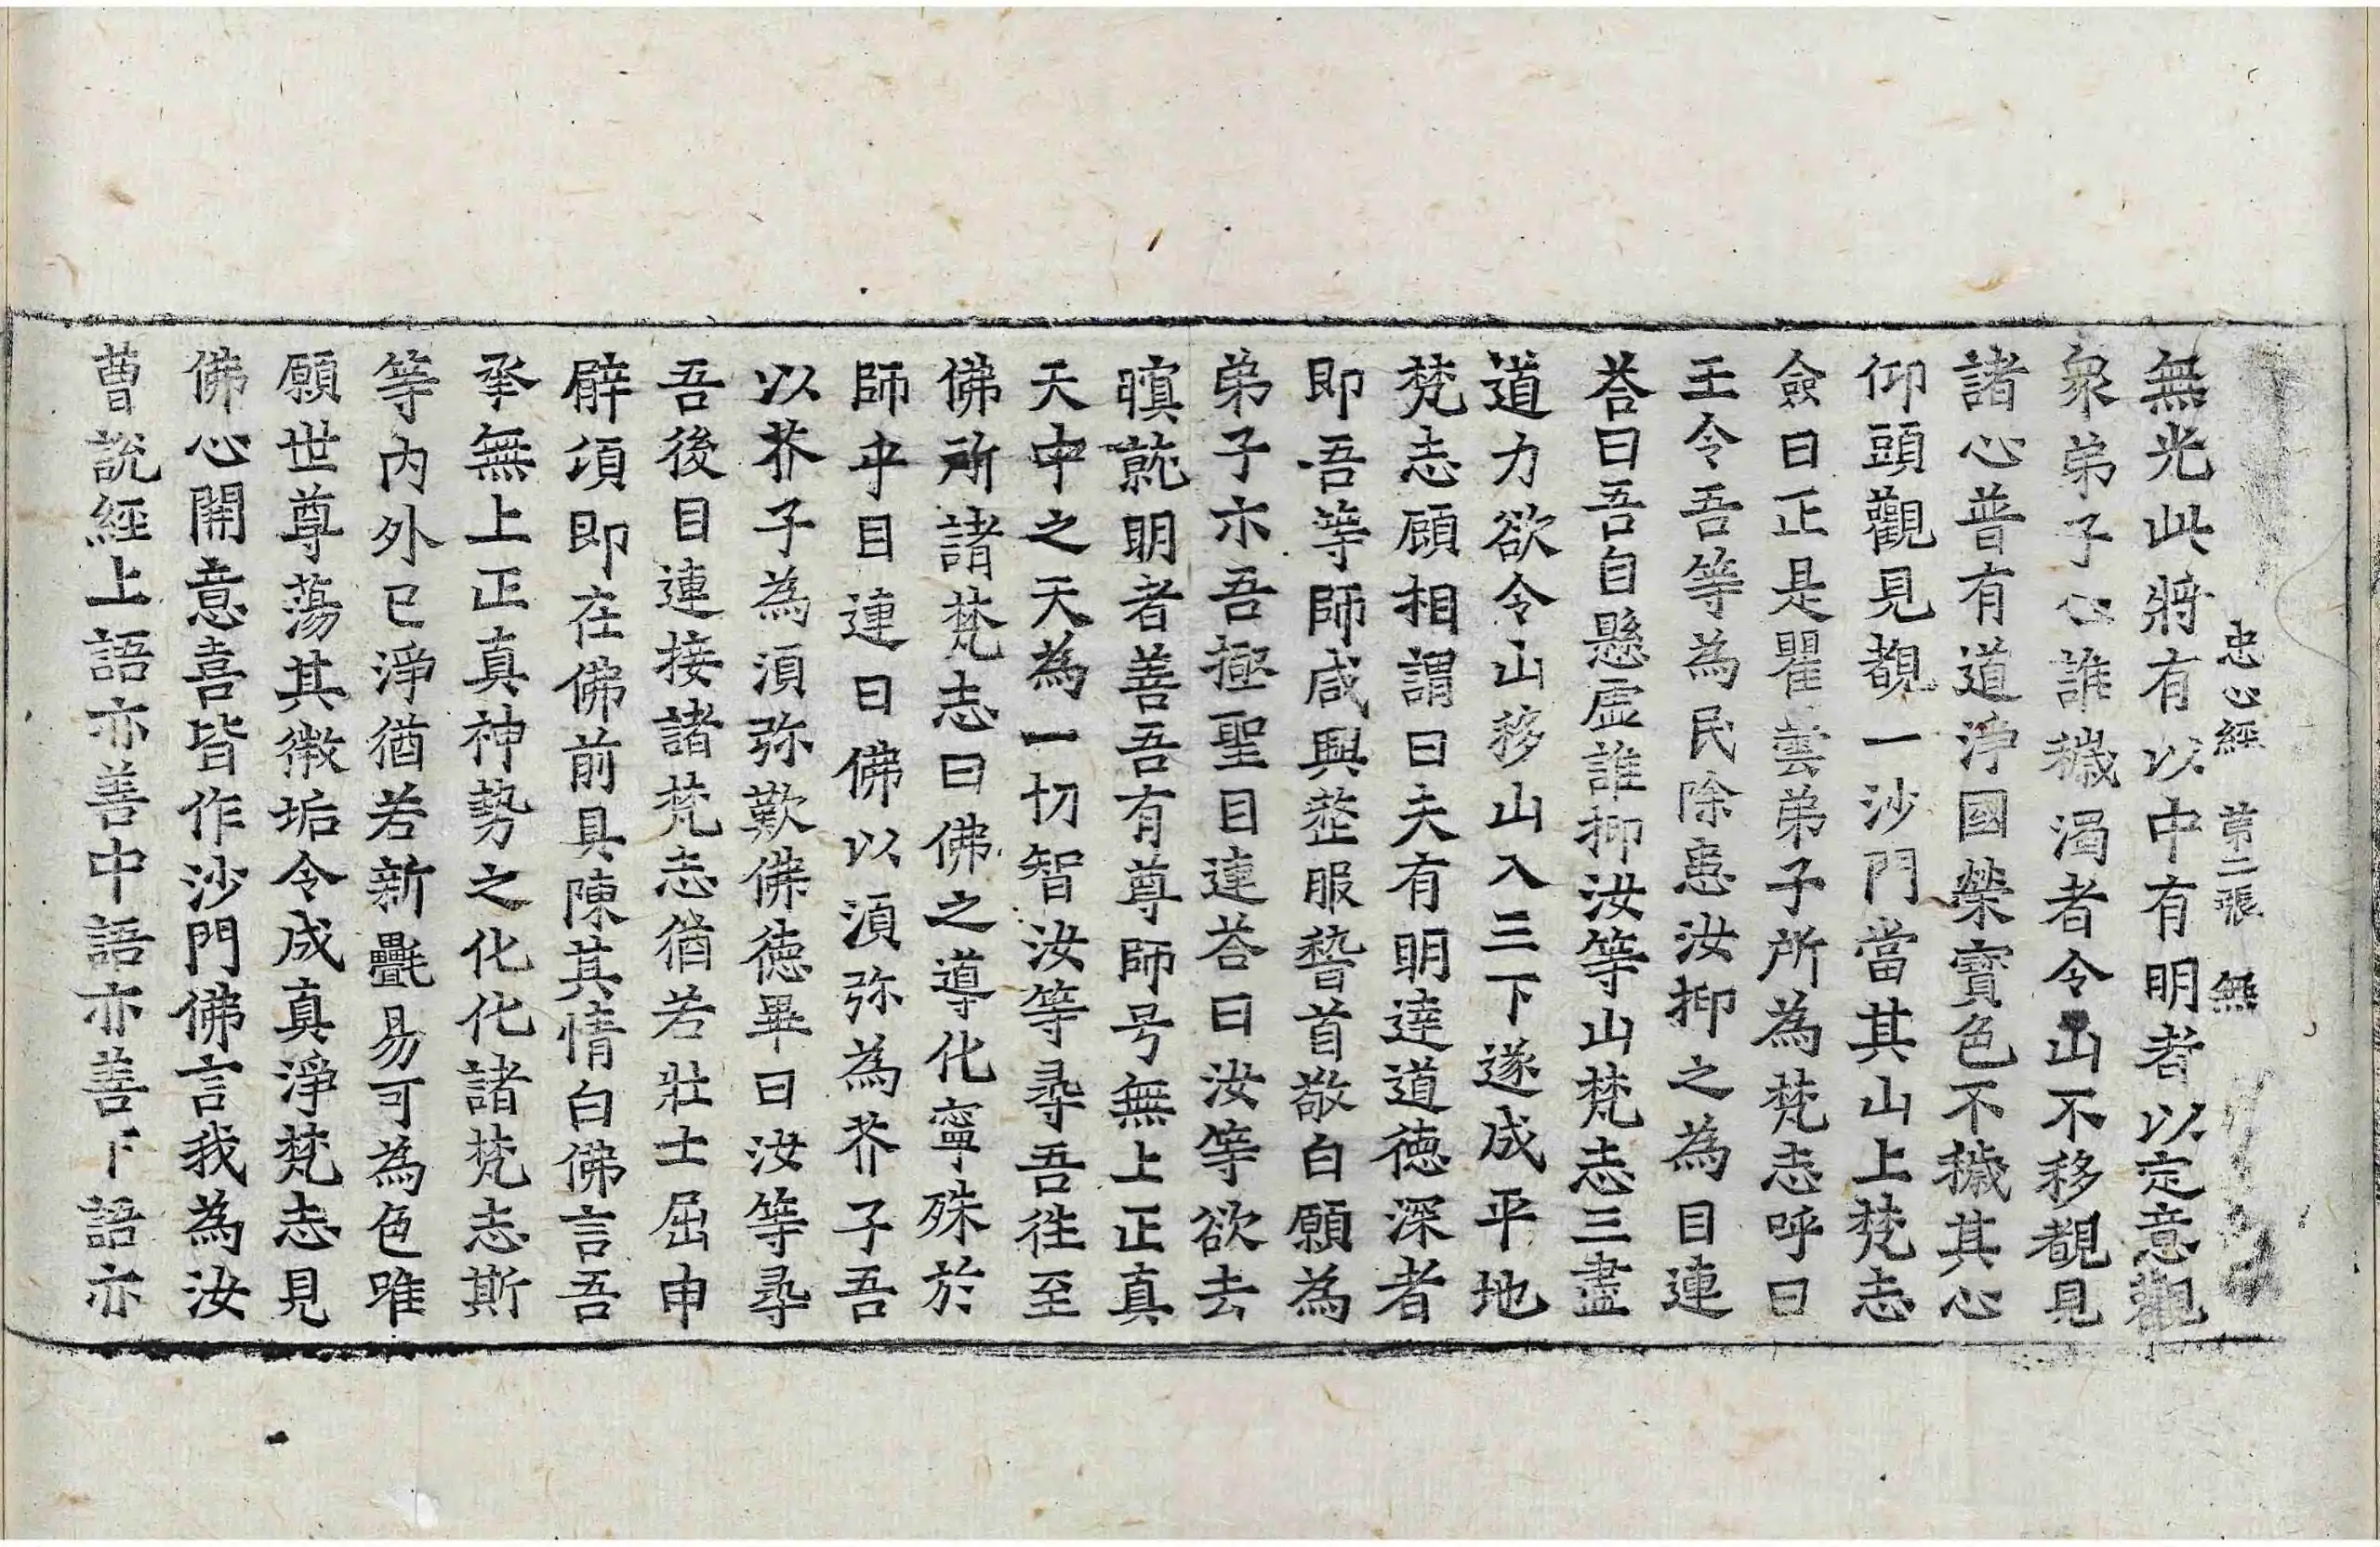 忠心經 第二張 無
無光此將有以中有明者以定意觀
衆弟子心誰穢濁者令山不移覩見
諸心普有道淨國榮寶色不穢其心
仰頭觀見覩一沙門當其山上梵志
僉曰正是瞿曇弟子所為梵志呼曰
王令吾等為民除患汝抑之為目連
荅曰吾自懸虛誰抑汝等山梵志三盡
道力欲令山移山入三下遂成平地
梵志顧相謂曰夫有明達道德深者
即吾等師咸興整服稽首敬白願為
弟子示吾極聖目連荅曰汝等欲去
瞋就明者善吾有尊師号無上正真
天中之天為一切智汝等尋吾往至
佛所諸梵志曰佛之導化寧殊於
師乎目連曰佛以湏弥為芥子吾
以芥子為湏弥歎佛德畢曰汝等尋
吾後目連接諸梵志猶若壯士屈申
臂頃即在佛前具陳其情白佛言吾
承無上正真神勢之化化諸梵志斯
等內外已淨猶若新㲲易可為色唯
願世尊蕩其微垢令成真淨梵志見
佛心開意喜皆作沙門佛言我為汝
曹說經上語亦善中語亦善下語亦